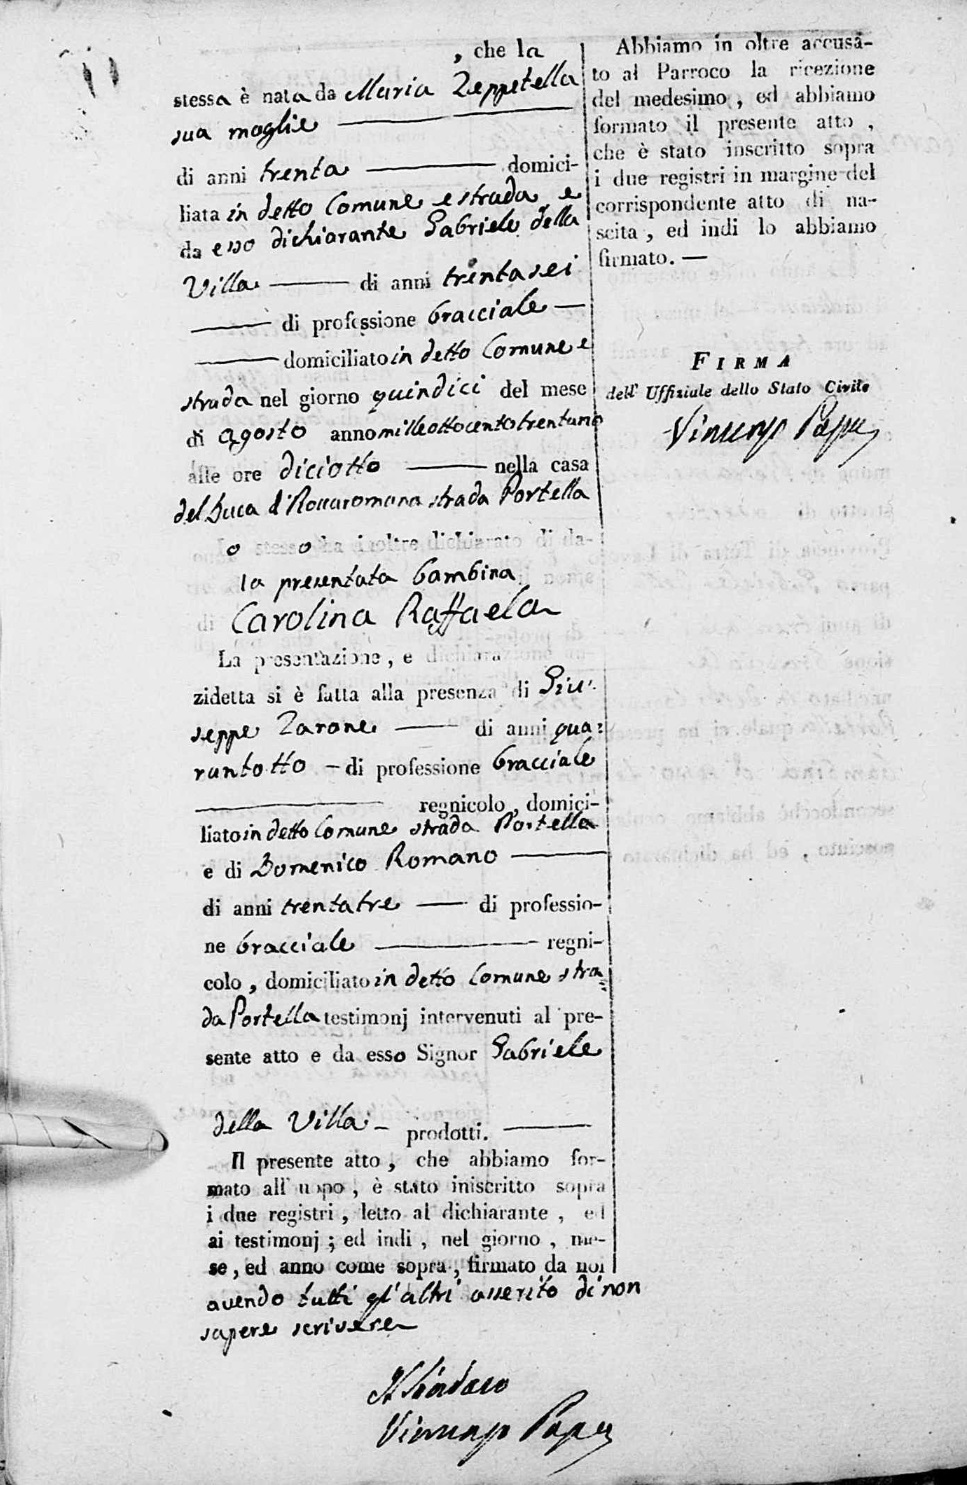 , che la
stessa è nata da Maria Zeppetella
sua moglie
di anni trenta domici-
liata in detto Comune e strada e
da esso dichiarante Gabriele della
Villa di anni trentasei
di professione bracciale
domiciliato in detto Comune e
strada nel giorno quindici del mese
di agosto anno milleottocentotrentuno
alle ore diciotto nella casa
del Duca di Roccaromana strada Portella
Lo stesso ha inoltre dichiarato di da-
la presentata bambina
Carolina Raffaela
La presentazione, e dichiarazione an-
zidetta si è fatta alla presenza di Giu-
seppe Zarone di anni qua-
rantotto di professione bracciale
regnicolo, domici-
liato in detto Comune strada Portella
e di Domenico Romano
di anni trentatre di professio-
ne bracciale regni-
colo, domiciliato in detto Comune stra
da Portella testimonj intervenuti al pre-
sente atto e da esso Signor Gabriele
della Villa prodotti.
Il presente atto, che abbiamo for-
mato all' uopo, è stato iniscritto sopra
i due registri, letto al dichiarante, ed
ai testimonj; ed indi, nel giorno, me-
se, ed anno come sopra, firmato da noi
avendo tutti gl'altri asserito di non
sapere scrivere
Il Sindaco
Vincenzo Papa
Abbiamo in oltre accusa-
to al Parroco la ricezione
del medesimo, ed abbiamo
formato il presente atto,
che è stato inscritto sopra
i due registri in margine del
corrispondente atto di na-
scita, ed indi lo abbiamo
firmato. —
FIRMA
dell' Uffiziale dello Stato Civile
Vincenzo Papa